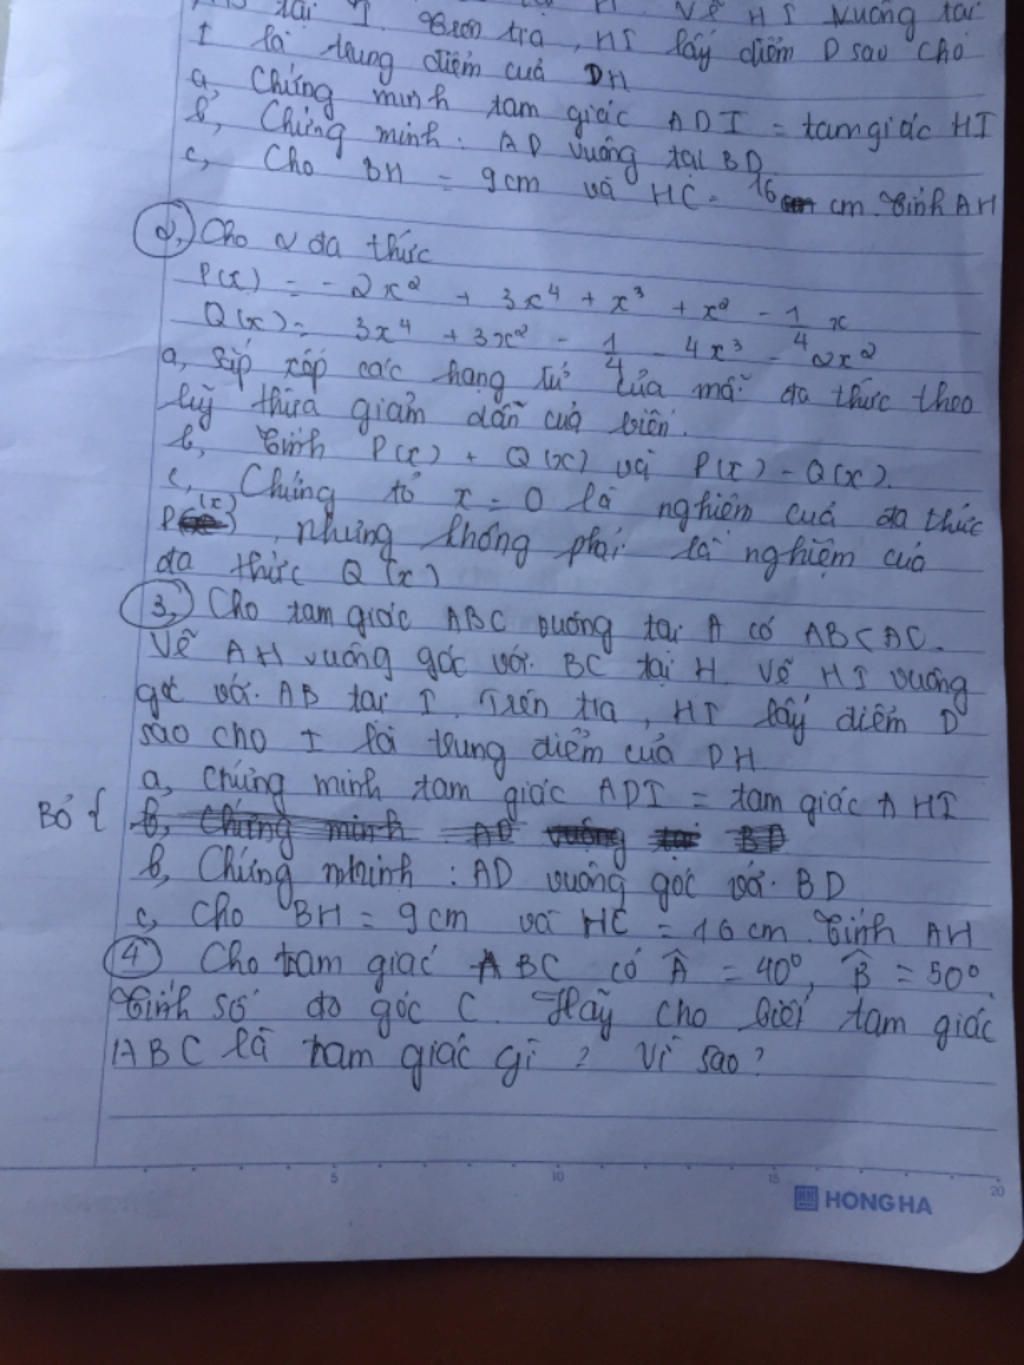 tại I. Trên tia, HI lấy điểm D sao cho
I là trung điểm của DH
a, Chứng minh tam giác ADI = tam giác HI
b, Chứng minh: AD vuông tại BD
c, Cho BH = 9cm và HC = 16 cm. Tính AH
2, Cho 2 đa thức
P(x) = -2x² + 3x⁴ + x³ + x² - 1/4 x
Q(x) = 3x⁴ + 3x² - 1/4 - 4x³ - 2x²
a, Sắp xếp các hạng tử của mỗi đa thức theo
luỹ thừa giảm dần của biến.
b, Tính P(x) + Q(x) và P(x) - Q(x).
c, Chứng tỏ x = 0 là nghiệm của đa thức
P(x), nhưng không phải là nghiệm của
đa thức Q(x)
3, Cho tam giác ABC vuông tại A có AB < AC.
Vẽ AH vuông góc với BC tại H. Vẽ HI vuông
góc với AB tại I. Trên tia, HI lấy điểm D
sao cho I là trung điểm của DH
a, Chứng minh tam giác ADI = tam giác AHI
Bỏ { b, Chứng minh AD vuông tại BD
b, Chứng minh: AD vuông góc với BD
c, Cho BH = 9cm và HC = 16cm. Tính AH
4 Cho tam giác ABC có Â = 40°, B̂ = 50°.
Tính số đo góc C. Hãy cho biết tam giác
ABC là tam giác gì? Vì sao?
5 10 15 20
HONG HA